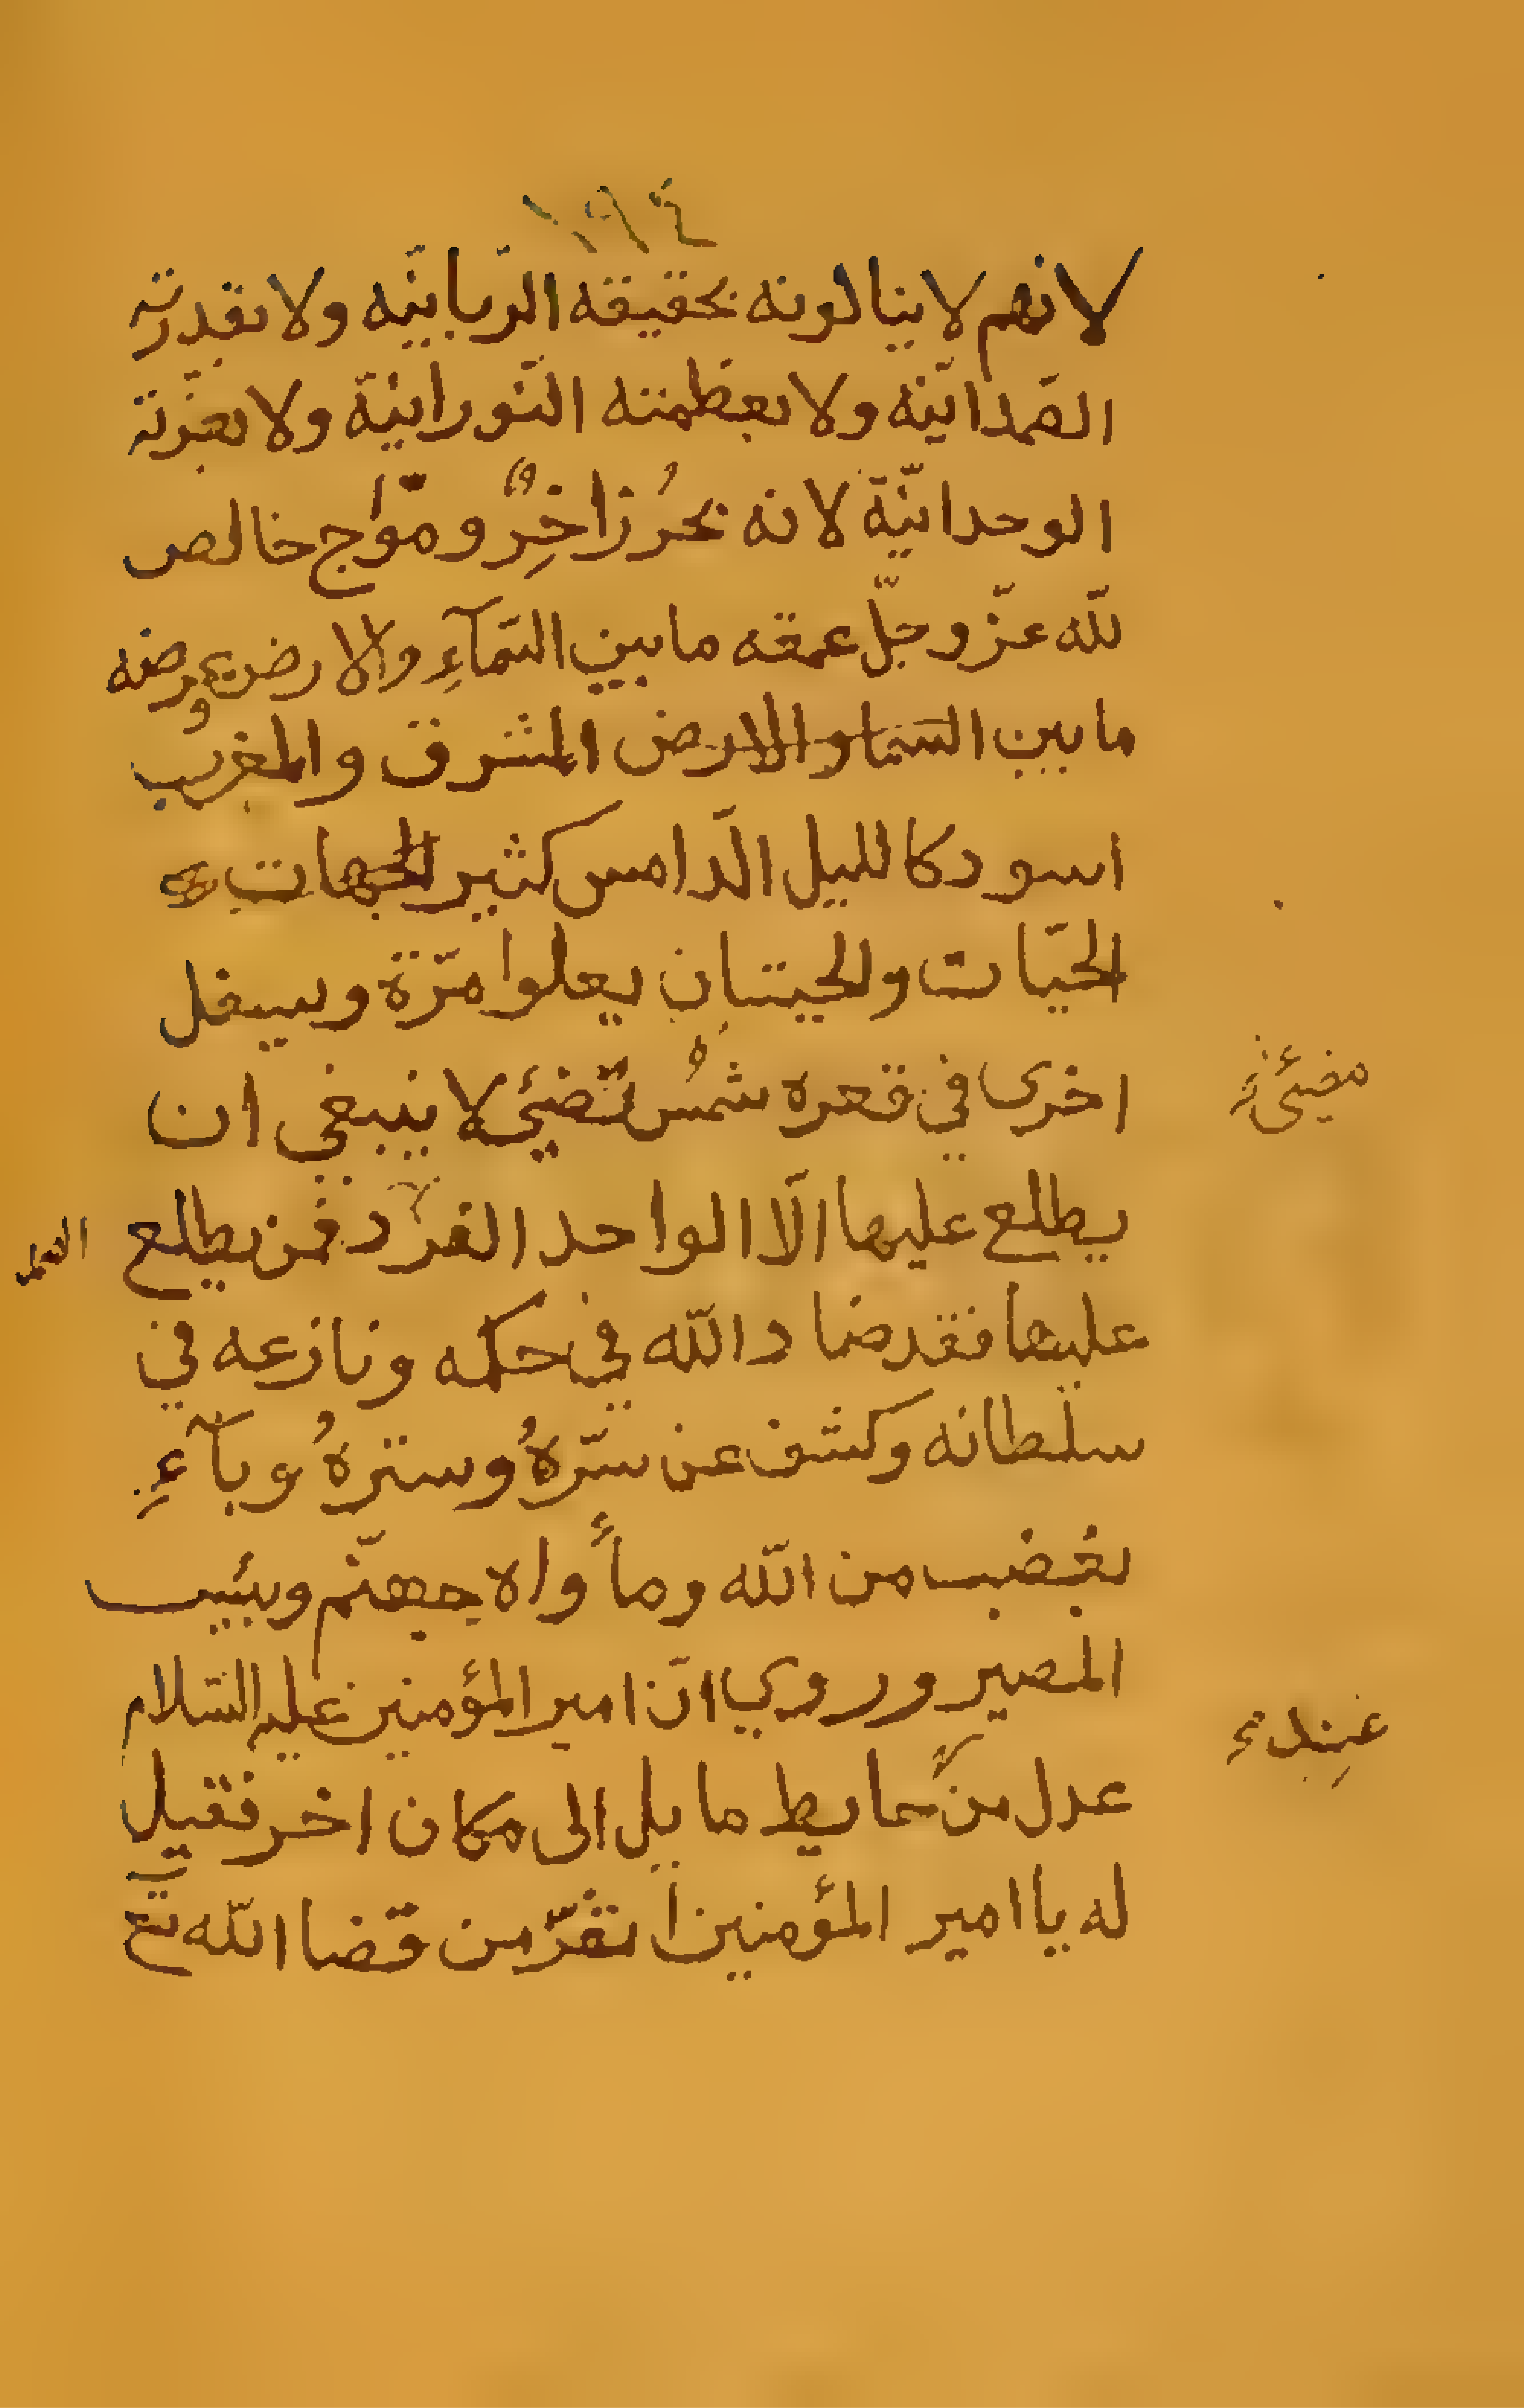 ١٩٤
لانهم لا ينالونه بحقيقه الرّبانيّه ولا بقدرته
الصّمدانيّه ولا بعظمته النّورانيّة ولا بعزّته
الوحدانيّة لانه بحرُ زاخِرٌ و موّاج خالص
للّه عزّ وجلّ عمقه ما بين السّمآءِ والارض وعرضه
ما بين السّما والارض المشرق والمغرب
اسود كالليل الدّامس كثير الجهات
الحيّات والحيتان يعلوا مرّة ويسفل
اخرى في قعره شمسُ تُضئُ لا ينبغي ان
مضيئة
يطلع عليها الّا الواحد الفرد فمن يطلع
عليها فقد ضاد اللّه في حكمه ونازعه في
سلطانه وكشف عن سرّهُ وسترهُ وبآءِ
بغضب من اللّه ومأواه جهنّم وبئيس
المصير وروي انّ امير المؤمنين عليه السّلام
عدل من حايط مايل الى مكان اخر فقيل
عِند
له يا امير المؤمنين اتفرّ من قضا اللّه تع